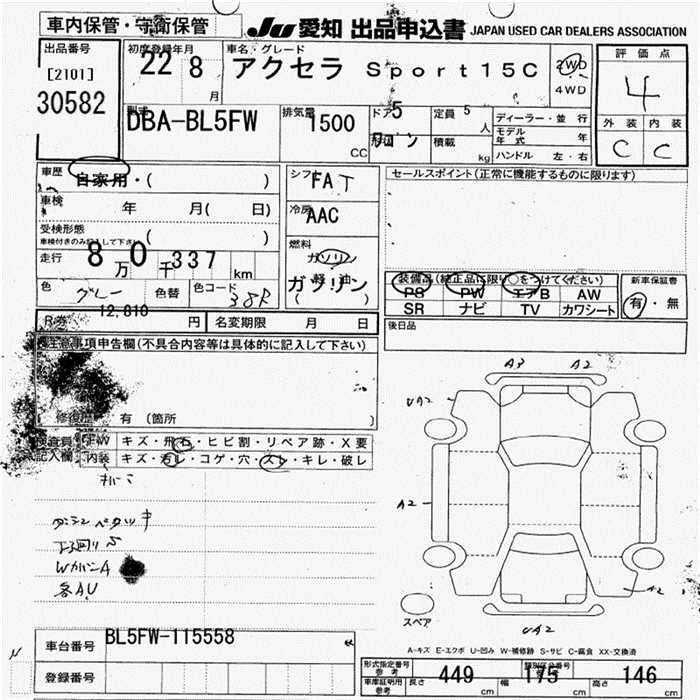 車内保管・守衛保管
JU 愛知 出品申込書 JAPAN USED CAR DEALERS ASSOCIATION
出品番号
[2101]
30582
初度登録年月
22 8 月
車名・グレード
アクセラ Sport15C
2WD
4WD
評価点
4
外装 内装
C C
型式
DBA-BL5FW
排気量
1500
CC
ドア 5
形状 ワゴン
定員 5 人
積載 kg
ディーラー・並行
モデル年式 年
ハンドル 左・右
車歴
自家用・( )
車検 年 月( 日)
受検形態
車検付きのみ記入して下さい ( )
走行 8万0千337 km
色 グレー 色替 色コード 38R
シフト FAT
冷房 AAC
燃料
ガソリン
軽油
ガソリン
( )
セールスポイント(正常に機能するものに限ります)
装備品(純正品に限り○をつけてください)
PS PW エアB AW
SR ナビ TV カワシート
新車保証書
有・無
R券 12,810 円 名変期限 月 日
後日品
注意事項申告欄(不具合内容等は具体的に記入して下さい)
修復歴 有 (箇所 )
検査員 FW キズ・飛石・ヒビ割・リペア跡・X要
記入欄 内装 キズ・汚レ・コゲ・穴・スレ・キレ・破レ
WカバンA
各AU
A3 A2
UA2
A2
A2
UA2
スペア
A-キズ E-エクボ U-凹み W-補修跡 S-サビ C-腐食 XX-交換済
車台番号 BL5FW-115558
登録番号
形式指定番号 参考 類別区分番号
車庫証明用 参考 長さ 449 cm 幅 175 cm 高さ 146 cm